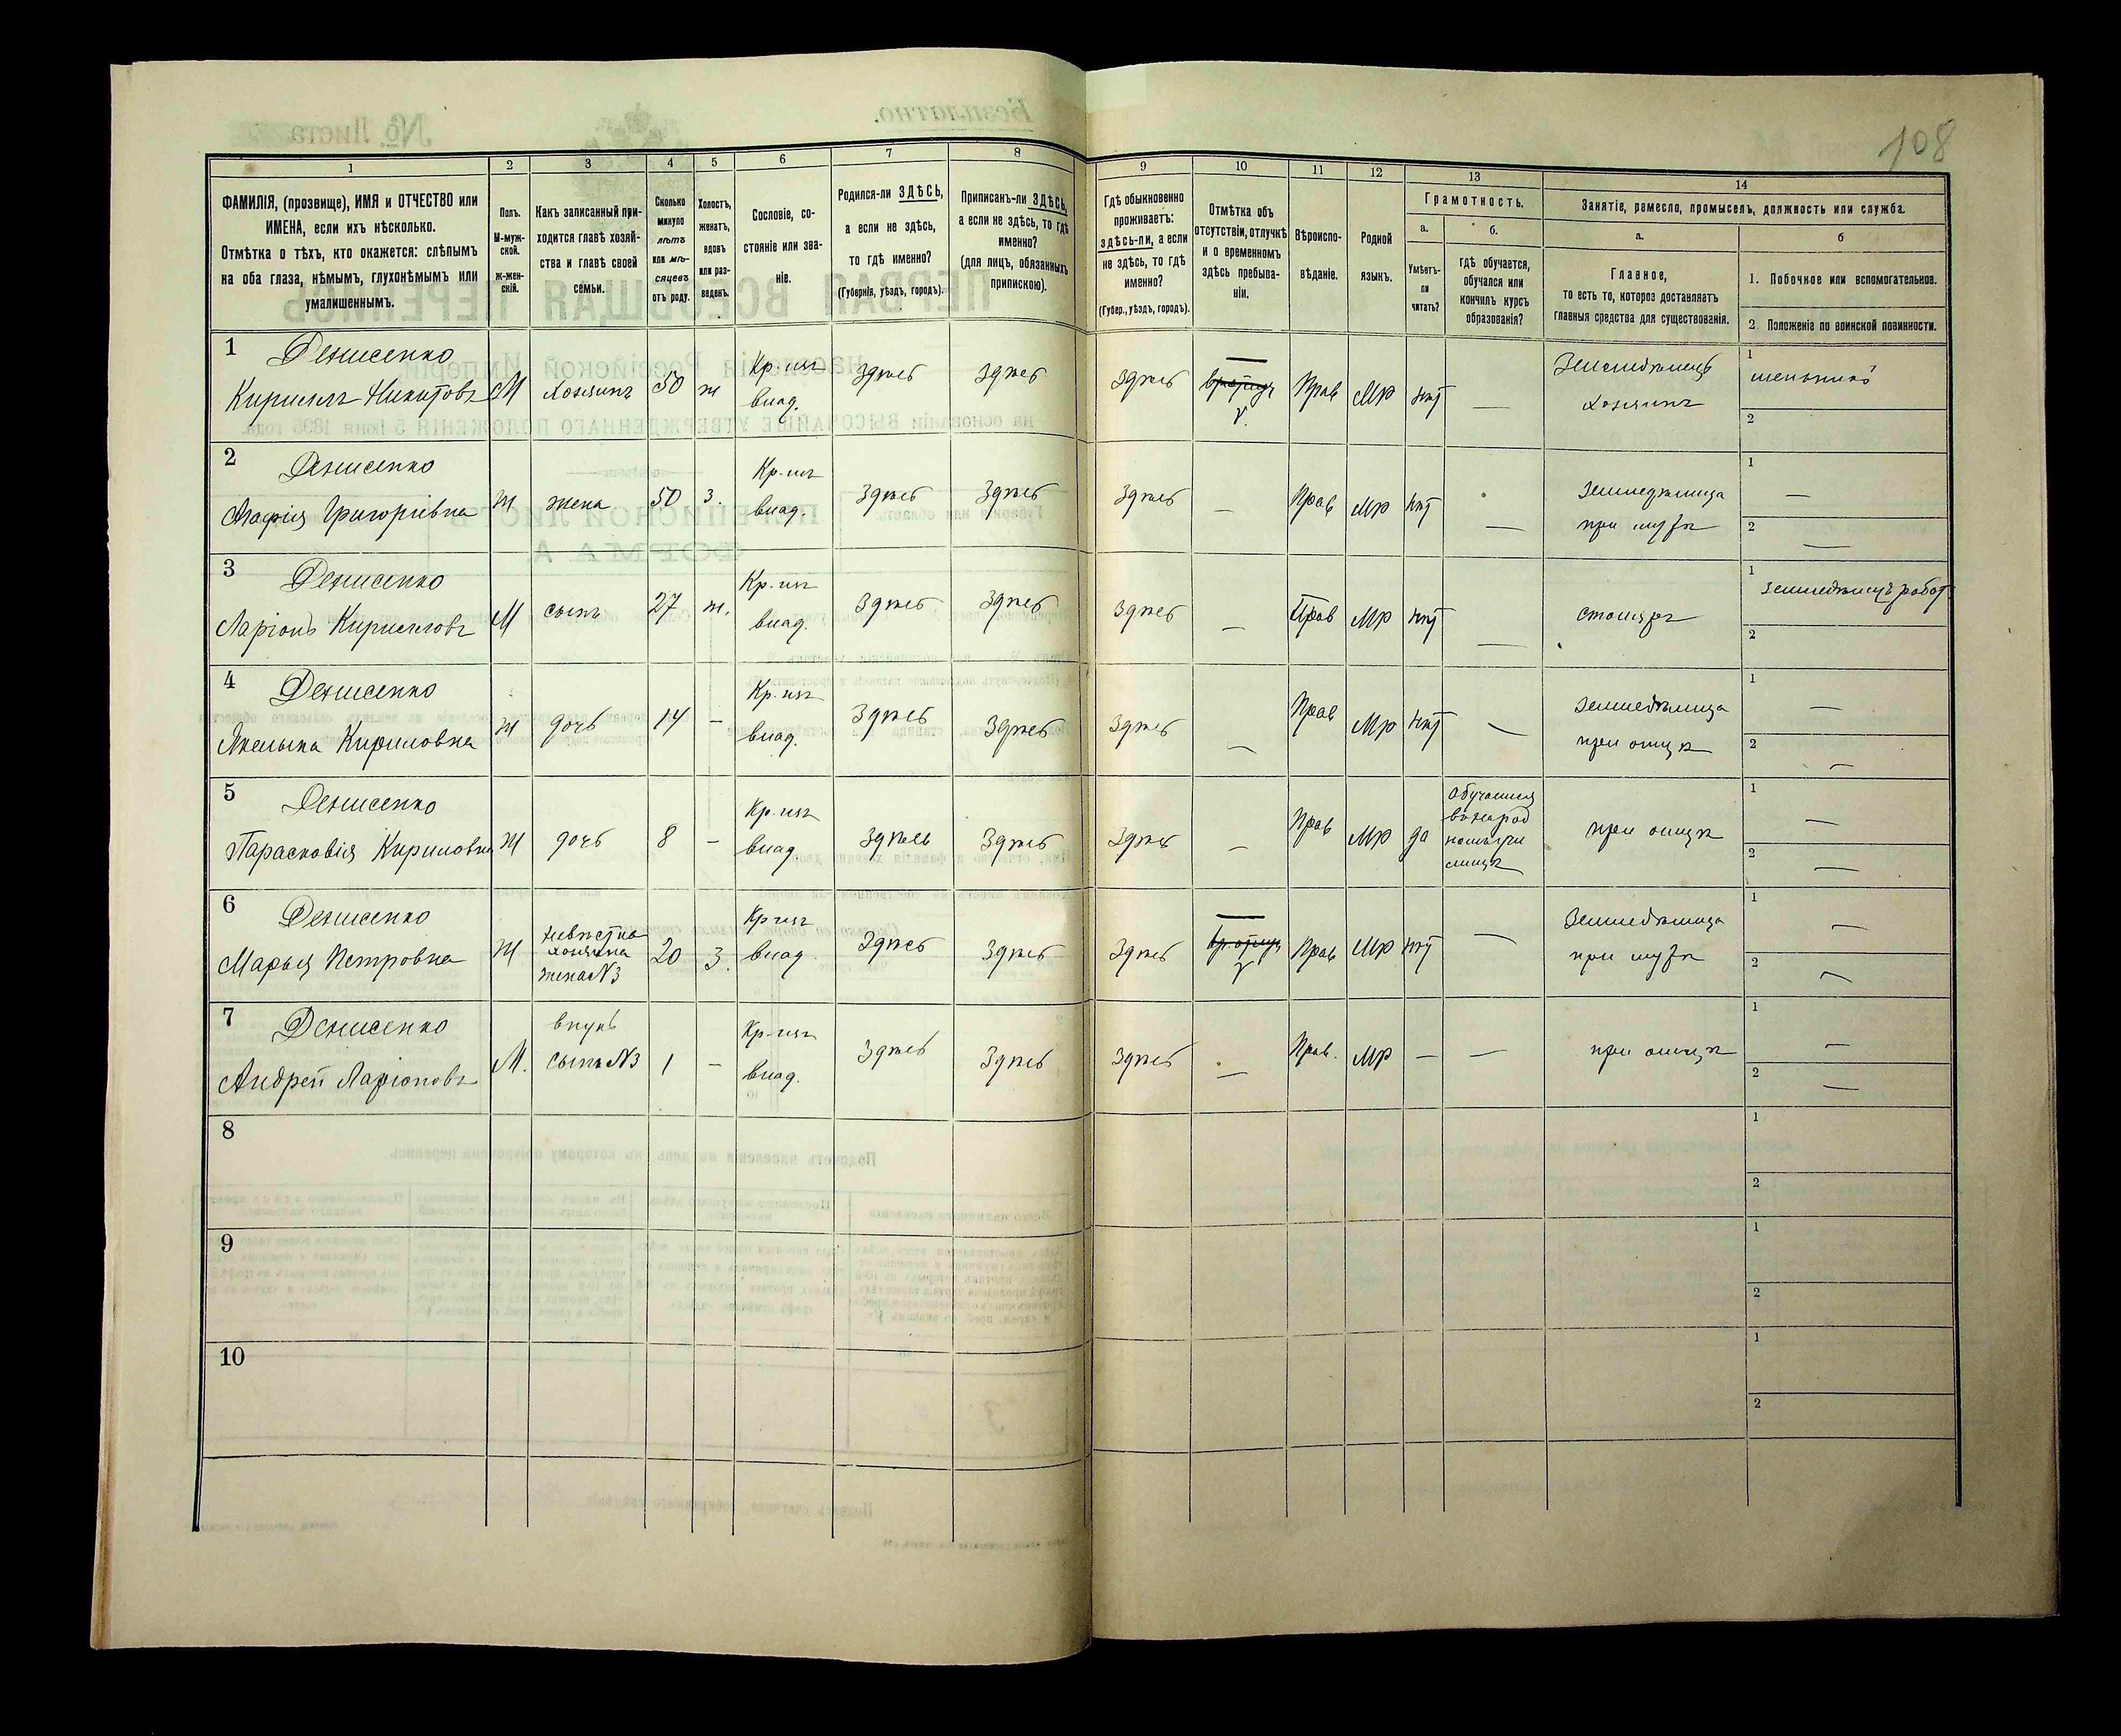 108
1
2
3
4
5
6
7
8
9
10
11
12
13
14
ФАМИЛІЯ, (прозвище), ИМЯ и ОТЧЕСТВО или
ИМЕНА, если ихъ нѣсколько.
Отмѣтка о тѣхъ, кто окажется: слѣпымъ
на оба глаза, нѣмымъ, глухонѣмымъ или
умалишеннымъ.
Полъ.
М-муж-
ской.
ж-жен-
скій.
Какъ записанный при-
ходится главѣ хозяй-
ства и главѣ своей
семьи.
Сколько
минуло
лѣтъ
или мѣ-
сяцевъ
отъ роду.
Холостъ,
женатъ,
вдовъ
или раз-
веденъ.
Сословіе, со-
стояніе или зва-
ніе.
Родился-ли ЗДѢСЬ,
а если не здѣсь,
то гдѣ именно?
(Губернія, уѣздъ, городъ).
Приписанъ-ли ЗДѢСЬ,
а если не здѣсь, то гдѣ
именно?
(для лицъ, обязанныхъ
припискою).
Гдѣ обыкновенно
проживаетъ:
здѣсь-ли, а если
не здѣсь, то гдѣ
именно?
(Губер., уѣздъ, городъ).
Отмѣтка объ
отсутствіи, отлучкѣ
и о временномъ
здѣсь пребыва-
ніи.
Вѣроиспо-
вѣданіе.
Родной
языкъ.
Грамотность.
а.
Умѣетъ-
ли
читать?
б.
гдѣ обучается,
обучался или
кончилъ курсъ
образованія?
Занятіе, ремесло, промыселъ, должность или служба.
а.
Главное,
то есть то, которое доставляетъ
главныя средства для существованія.
б
1. Побочное или вспомогательное.
2. Положеніе по воинской повинности.
1 Денисенко
Кириллъ Никитовъ М хозяинъ 50 ж Кр-инъ влад. здѣсь здѣсь здѣсь — Прав МР нѣт — Земледѣлецъ хозяинъ 1 мельникъ 2
2 Денисенко
Агафія Григорівна ж жена 50 з. Кр-инъ влад. здѣсь здѣсь здѣсь — Прав МР нѣт — Земледѣлица при мужѣ 1 — 2 —
3 Денисенко
Ларіонъ Кирилловъ М сынъ 27 ж. Кр-инъ влад. здѣсь здѣсь здѣсь — Прав МР нѣт — столяръ 1 земледѣлецъ работ 2
4 Денисенко
Кириловна ж дочь 14 — Кр-инъ влад. здѣсь здѣсь здѣсь — Прав МР нѣт — Земледѣлица при отцѣ 1 — 2 —
5 Денисенко
Парасковія Кириловна ж дочь 8 — Кр-инъ влад здѣсь здѣсь здѣсь — Прав МР да Обучается в народ номъ учи лищѣ при отцѣ 1 — 2 —
6 Денисенко
Марья Петровна ж невѣстка хозяина жена N3 20 з. Кр-инъ влад здѣсь здѣсь здѣсь — Прав МР нѣт — Земледѣлица при мужѣ 1 — 2 —
7 Денисенко
Андрей Ларіоновъ М. внукъ сынъ N3 1 — Кр-инъ влад. здѣсь здѣсь здѣсь — Прав. МР — — при отцѣ 1 — 2 —
8 1 2
9 1 2
10 1 2